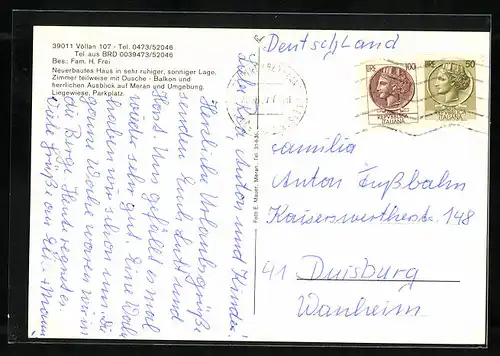 39011 Völlan 107 - Tel. 0473/52046
Tel. aus BRD 0039473/52046
Bes.: Fam. H. Frei
Neuerbautes Haus in sehr ruhiger, sonniger Lage.
Zimmer teilweise mit Dusche - Balkon und
herrlichen Ausblick auf Meran und Umgebung.
Liegewiese, Parkplatz.
Anton und Kinder!
Herzliche Urlaubsgrüße
senden Euch und
Horst. Uns gefällt es mal
wieder sehr gut. Eine Woche
haben wir schon um. Die
ganze Woche waren wir in
die Berge. Heute regnet es.
Viele Grüße
Foto E. Mauer, Meran, Tel.
Deutschland
LIRE 100
REPUBBLICA
ITALIANA
LIRE 50
REPUBBLICA
ITALIANA
Familia
Anton Fußbahn
Kaiserswertherstr. 148
41 Duisburg
Wanheim